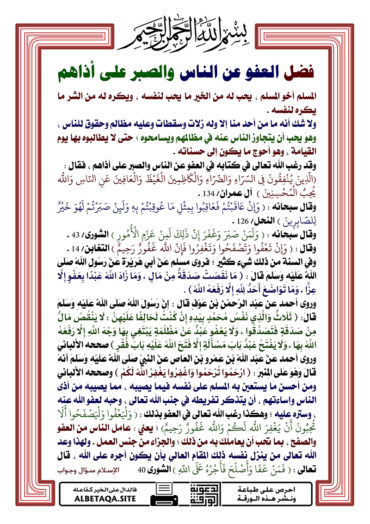 بسم الله الرحمن الرحيم
فضل العفو عن الناس والصبر على أذاهم
المسلم أخو المسلم ، يحب له من الخير ما يحب لنفسه ، ويكره له من الشر ما
يكره لنفسه .
ولا شك أنه ما من أحد منا إلا وله زلات وسقطات وعليه مظالم وحقوق للناس ،
وهو يحب أن يتجاوز الناس عنه في مظالمهم ويسامحوه ؛ حتى لا يطالبوه بها يوم
القيامة ، وهو أحوج ما يكون إلى حسناته .
وقد رغب الله تعالى في كتابه في العفو عن الناس والصبر على أذاهم ، فقال :
(الَّذِينَ يُنْفِقُونَ فِي السَّرَّاءِ وَالضَّرَّاءِ وَالْكَاظِمِينَ الْغَيْظَ وَالْعَافِينَ عَنِ النَّاسِ وَاللَّهُ
يُحِبُّ الْمُحْسِنِينَ ) آل عمران/ 134 .
وقال سبحانه : ( وَإِنْ عَاقَبْتُمْ فَعَاقِبُوا بِمِثْلِ مَا عُوقِبْتُمْ بِهِ وَلَئِنْ صَبَرْتُمْ لَهُوَ خَيْرٌ
لِلصَّابِرِينَ ) النحل/ 126 .
وقال سبحانه : ( وَلَمَنْ صَبَرَ وَغَفَرَ إِنَّ ذَلِكَ لَمِنْ عَزْمِ الْأُمُورِ ) الشورى/ 43 .
وقال : ( وَإِنْ تَعْفُوا وَتَصْفَحُوا وَتَغْفِرُوا فَإِنَّ اللَّهَ غَفُورٌ رَحِيمٌ ) التغابن/ 14 .
وفي السنة من ذلك شيء كثير ؛ فروى مسلم عن أبي هريرة عن رسول الله صلى
الله عليه وسلم قال : ( مَا نَقَصَتْ صَدَقَةٌ مِنْ مَالٍ ، وَمَا زَادَ اللَّهُ عَبْدًا بِعَفْوٍ إِلَّا
عِزًّا ، وَمَا تَوَاضَعَ أَحَدٌ لِلَّهِ إِلَّا رَفَعَهُ اللَّهُ ) .
وروى أحمد عن عبد الرحمن بن عوف قال : إن رسول الله صلى الله عليه وسلم
قال : ( ثَلَاثٌ وَالَّذِي نَفْسُ مُحَمَّدٍ بِيَدِهِ إِنْ كُنْتُ لَحَالِفًا عَلَيْهِنَّ : لَا يَنْقُصُ مَالٌ
مِنْ صَدَقَةٍ فَتَصَدَّقُوا ، وَلَا يَعْفُو عَبْدٌ عَنْ مَظْلَمَةٍ يَبْتَغِي بِهَا وَجْهَ اللَّهِ إِلَّا رَفَعَهُ
اللَّهُ بِهَا ، وَلَا يَفْتَحُ عَبْدٌ بَابَ مَسْأَلَةٍ إِلَّا فَتَحَ اللَّهُ عَلَيْهِ بَابَ فَقْرٍ ) صححه الألباني
وروى أحمد عن عبد الله بن عمرو بن العاص عن النبي صلى الله عليه وسلم أنه
قال وهو على المنبر : ( ارْحَمُوا تُرْحَمُوا وَاغْفِرُوا يَغْفِرِ اللَّهُ لَكُمْ ) وصححه الألباني
ومن أحسن ما يستعين به المسلم على نفسه فيما يصيبه . مما يصيبه من أذى
الناس وإساءتهم ، أن يتذكر تفريطه في جنب الله تعالى ، وحبه لعفو الله عنه
، وستره عليه ؛ وهكذا رغب الله تعالى في العفو بذلك : ( وَلْيَعْفُوا وَلْيَصْفَحُوا أَلَا
تُحِبُّونَ أَنْ يَغْفِرَ اللَّهُ لَكُمْ وَاللَّهُ غَفُورٌ رَحِيمٌ) ؛ يعني : عامل الناس من العفو
والصفح ، بما تحب أن يعاملك به من ذلك ؛ والجزاء من جنس العمل . ولهذا وعد
الله تعالى من ينزل نفسه ذلك المقام العالي بأن يكون أجره على الله ، قال
تعالى : ( فَمَنْ عَفَا وَأَصْلَحَ فَأَجْرُهُ عَلَى اللَّهِ ) الشورى 40 الإسلام سؤال وجواب
احرص على طباعة
ونشر هذه الورقة
الدعوية
الورقة
فالدال على الخير كفاعله
ALBETAQA.SITE